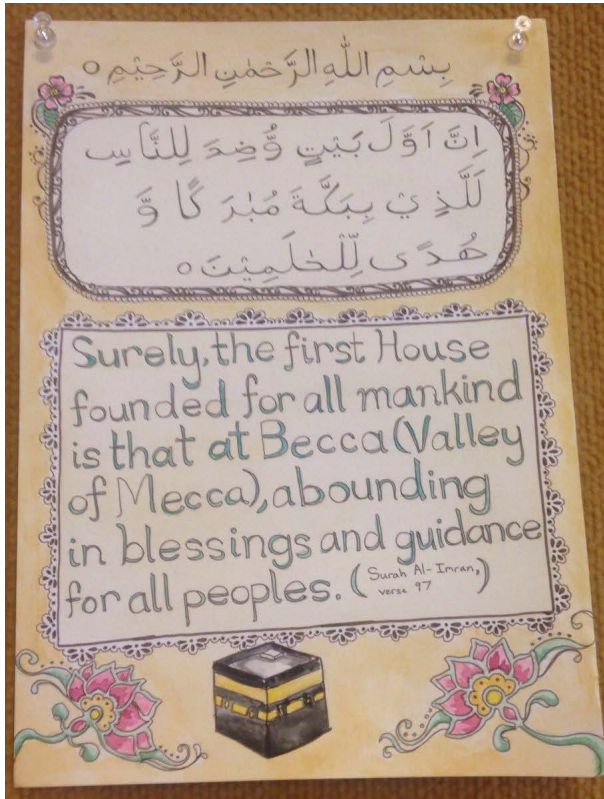 بِسْمِ اللّٰهِ الرَّحْمٰنِ الرَّحِيْمِ ○
اِنَّ اَوَّلَ بَيْتٍ وُّضِعَ لِلنَّاسِ
لَلَّذِيْ بِبَكَّةَ مُبٰرَكًا وَّ
هُدًى لِّلْعٰلَمِيْنَ ○
Surely, the first House
founded for all mankind
is that at Becca (Valley
of Mecca), abounding
in blessings and guidance
for all peoples. (Surah Al-Imran,
verse 97)